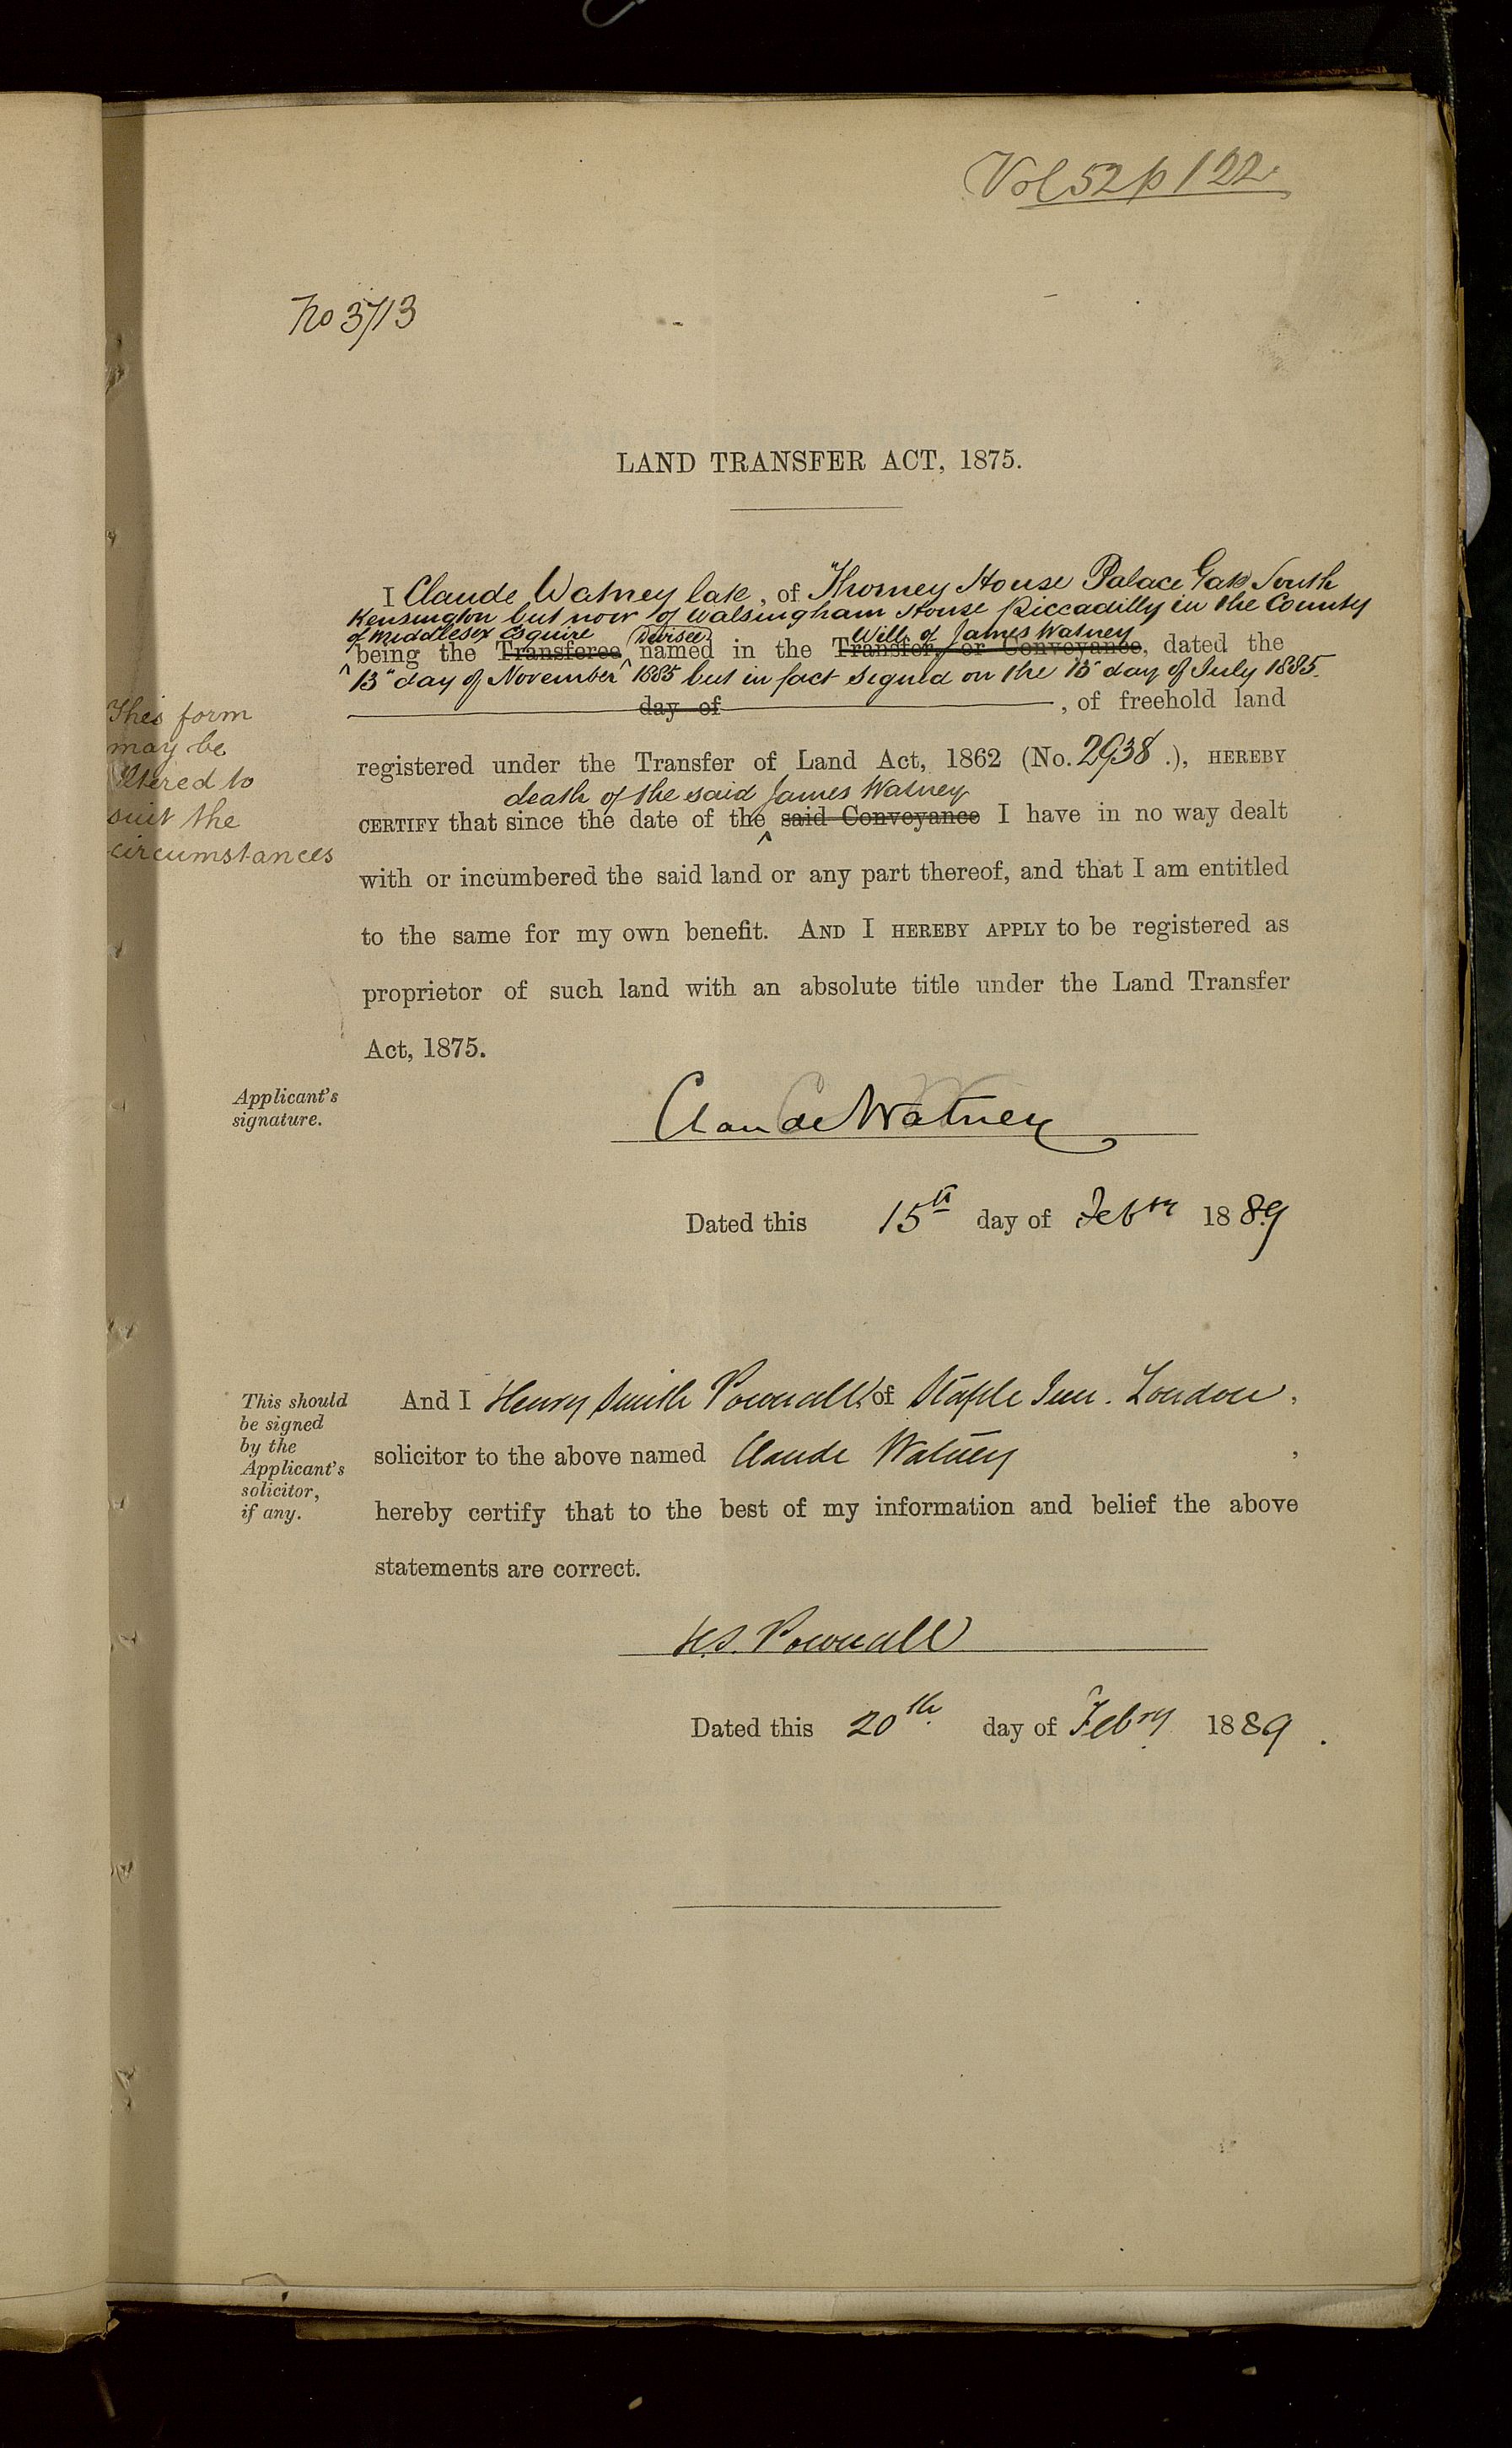 Vol 52 p 122.
No 3713
LAND TRANSFER ACT, 1875.
I Claude Watney late, of Thorney House Palace Gate South
Kensington but now of Walsingham House Piccadilly in the County
of Middlesex Esquire (Devisee) Will of James Watney
being the Transferee named in the Transfer, or Conveyance, dated the
13" day of November 1885 but in fact signed on the 13" day of July 1885.
day of , of freehold land
This form
may be
altered to
suit the
circumstances
registered under the Transfer of Land Act, 1862 (No. 2938.), HEREBY
death of the said James Watney
CERTIFY that since the date of the said Conveyance I have in no way dealt
with or incumbered the said land or any part thereof, and that I am entitled
to the same for my own benefit. AND I HEREBY APPLY to be registered as
proprietor of such land with an absolute title under the Land Transfer
Act, 1875.
Applicant's
signature.
Claude Watney
Dated this 15th day of Febry 1889
This should
be signed
by the
Applicant's
solicitor,
if any.
And I Henry Smith Pownall, of Staple Inn. London,
solicitor to the above named Claude Watney ,
hereby certify that to the best of my information and belief the above
statements are correct.
H.S. Pownall
Dated this 20th day of Febry 1889.